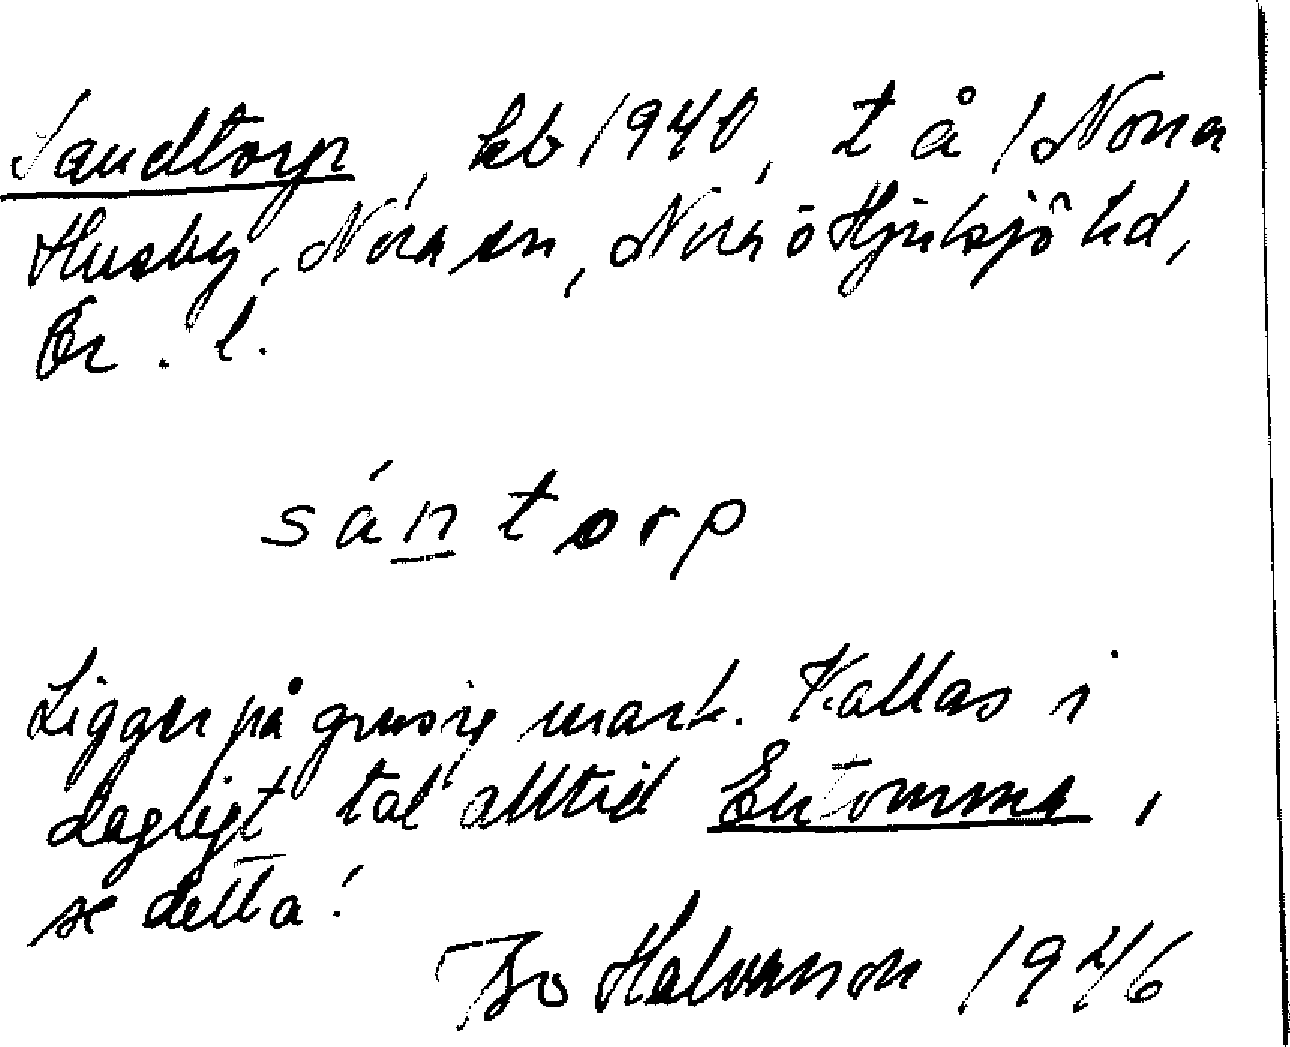 Sandtorp, hb 1940, t å 1 Norra
Husby, Nora sn, Nora o Hjulsjö hd,
Ör. l.
sántorp
Ligger på grusig mark. Kallas i
dagligt tal alltid Entomma,
se detta!
Bo Halvarson 1946